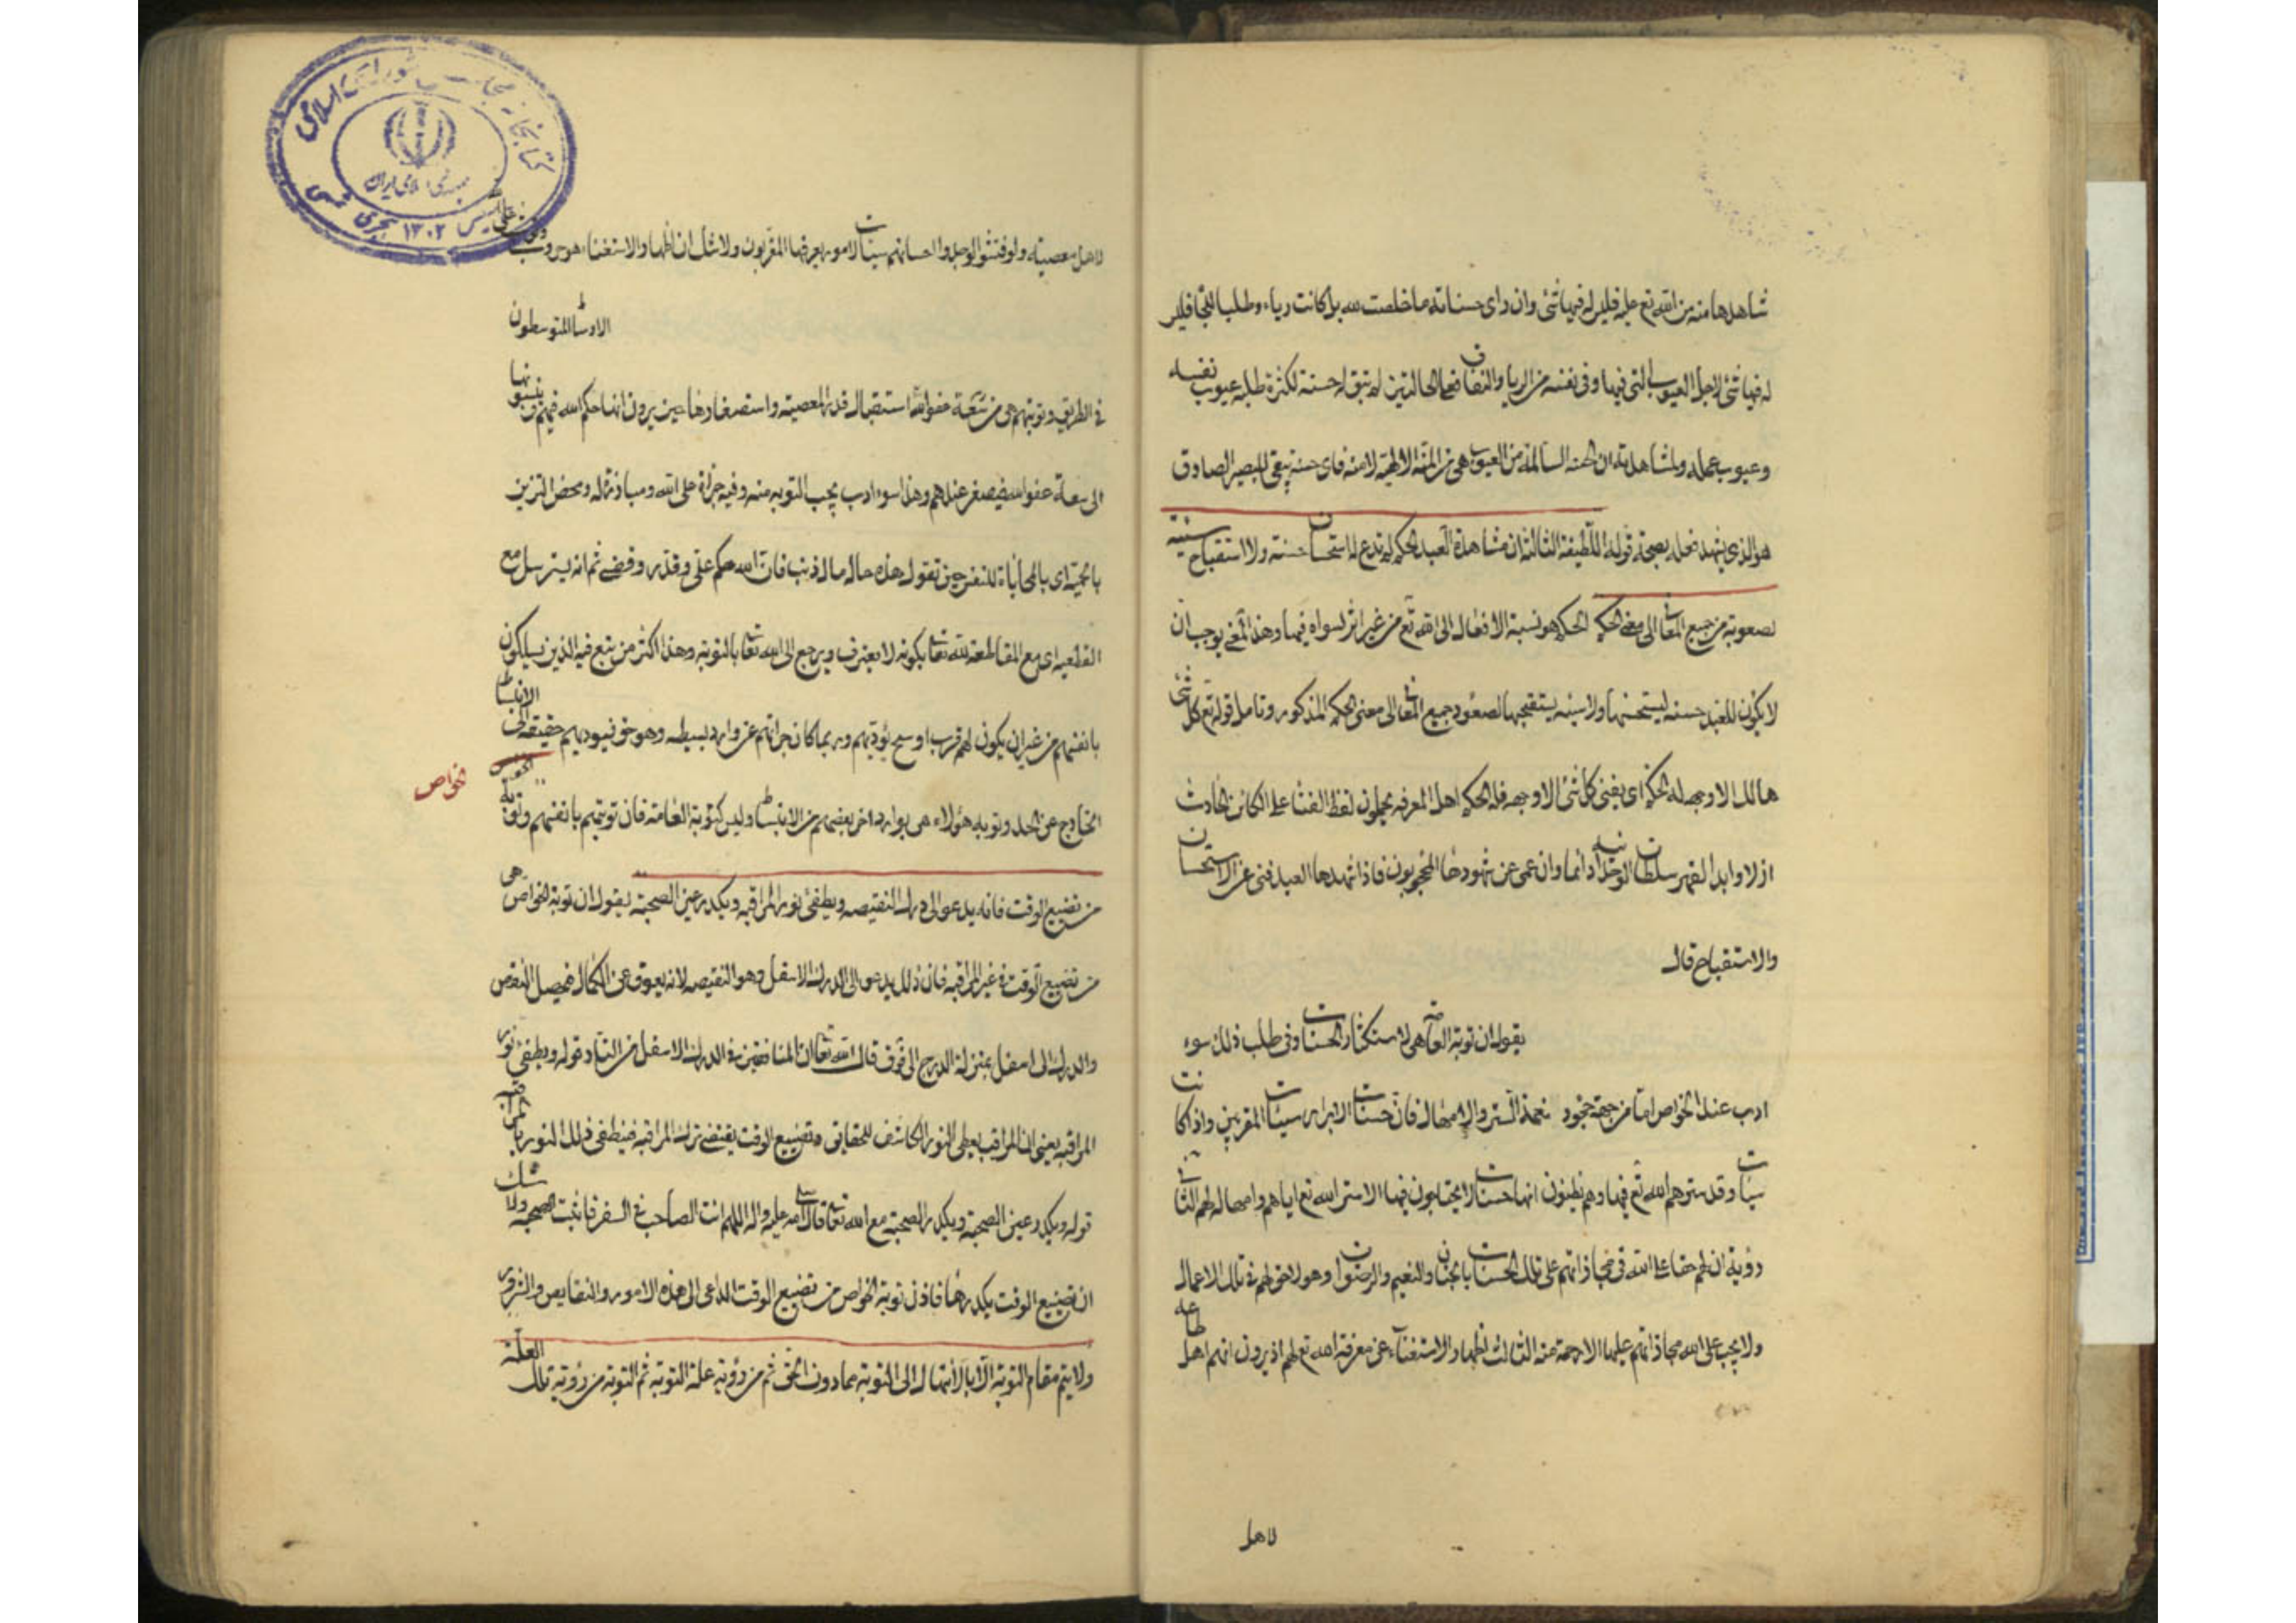 شاهدها منه من الله تع عليه فليس له فيها شئ وان رای حسناته ما خلصت لله بل كانت رياء وطلبا للجا فليس
له فيها شئ لاجل العيوب التی فيها وفی نفسه من الريا والنفاق فعلی الحالتين لم تبق له حسنة لكثرة طلبه عيوب نفسه
وعيوب عمله ولمشاهدته ان الحسنة السالمة من العيوب هی من المنة الالهية لا منه فای حسنة يبقی للبصير الصادق
هو الذی يشهد فعله بصحة قوله اللطيفة الثالثة ان مشاهدة العبد الحكم لم تدع له استحسان حسنة ولا استقباح سيئة
لصعوده من جميع المعانی الی معنی الحكم الحكم هو نسبة الافعال الی الله تع من غير اثر لسواه فيها وهذا المعنی يوجب ان
لا يكون للعبد حسنة يستحسنها ولا سيئة يستقبحها لصعود جميع المعانی الی معنی الحكم المذكور وتامل قوله تع كل شئ
هالك الا وجهه له الحكم ای يفنی كل شئ الا وجهه فله الحكم اهل المعرفه يحملون لفظ الفنا علی الكائن الحادث
ازلا وابدا لقهر سلطان الوحدانيه دائما وان عمی عن شهودها المحجوبون فاذا شهدها العبد فنی عن الاستحسان
والاستقباح قال
يقول ان توبة العامة هی لاستكثار الحسنات وفی طلب ذلك سوء
ادب عند الخواص اما من جهة جحود نعمة الستر والامهال فان حسنات الابرار سيئات المقربين واذا كانت
سيئات وقد سترهم الله تع فيها وهم يظنون انها حسنات لا يحتاجون فيها الا ستر الله تع اياهم وامهاله لهم الثانی
رؤية ان لهم حقا علی الله فی مجازاتهم علی تلك الحسنات بالجنان والنعيم والرضوان وهو لا حق لهم فی تلك الاعمال
ولا يجب علی الله مجازاتهم عليها الا رحمة منه الثالث اظهار الاستغناء عن معرفة الله تع لهم اذ يرون انهم اهل طاعة
لا هل
لا هل معصيته ولو فتشوا لوجدوا حسناتهم سيئات لامور يعرفها المقربون ولا شك ان اظهار الاستغناء هو حروب
الاوساط المتوسطون
فی الطريق وتوبتهم هی من استقلال قدر المعصية واستصغارها حين يرون انها حكم الله فيهم فينسبونها
الی سعة عفو الله فيصغر عندهم وهذا سوء ادب يجب التوبه منه وفيه جراة علی الله ومبارزة له ومحض التزين
بالحمية ای بالمحاباة للنفس حين تقول هذه حاله ما له ذنب فان الله حكم علی وقدر وقضی ثم انه يسترسل مع
القطعيه ای مع المقاطعة لله تعا بكونه لا يعترف ويرجع الی الله تعا بالتوبة وهذا اكثر من يتبع فيه الذين يسلكون
بانفسهم من غير ان يكون لهم قرب او شيخ يؤدبهم وربما كان جراتهم عن وارد بسيطه وهو خوفيوديهم حقيقة الی الانبساط
الخارج عن الحد وتوبه هؤلاء هی بوارد اخر يقبضهم من الانبساط وليس كتوبة العامة فان توبتهم بانفسهم وتوبة
الخواص
من تضييع الوقت فانه يدعو الی درك النقيصه ويطفئ نور المراقبه ويكدر عين الصحبة يقول ان توبة الخواص هی
من تضييع الوقت فی غير المراقبه فان ذلك يدعو الی الدرك الاسفل وهو النقيصه لانه يعوق عن الكمال فيحصل النقص
والدرك الی اسفل بمنزلة الدرج الی فوق قال الله تعا ان المنافقين فی الدرك الاسفل من النار قوله ويطفئ نور
المراقبه يعنی ان المراقب يعطی النور الكاشف للحقايق وتضييع الوقت يقتضی ترك المراقبه فينطفی ذلك النور بالمراقبه
قوله ويكدر عين الصحبة ويكدر الصحبة مع الله تعا قال صلی الله عليه واله اللهم انت الصاحب فی السفر فاثبت الصحبة ولا شك
ان تضييع الوقت يكدرها فاذن توبة الخواص من تضييع الوقت الداعی الی هذه الامور والنقايص والشرور
ولا يتم مقام التوبة الا بالانتهاء الی التوبه مما دون الحق ثم من رؤية علة التوبة ثم التوبة من رؤية تلك العلة
كتابخانه مجلس شورای اسلامی
جمهوری اسلامی ایران
تاسیس ۱۳۰۲ هجری شمسی